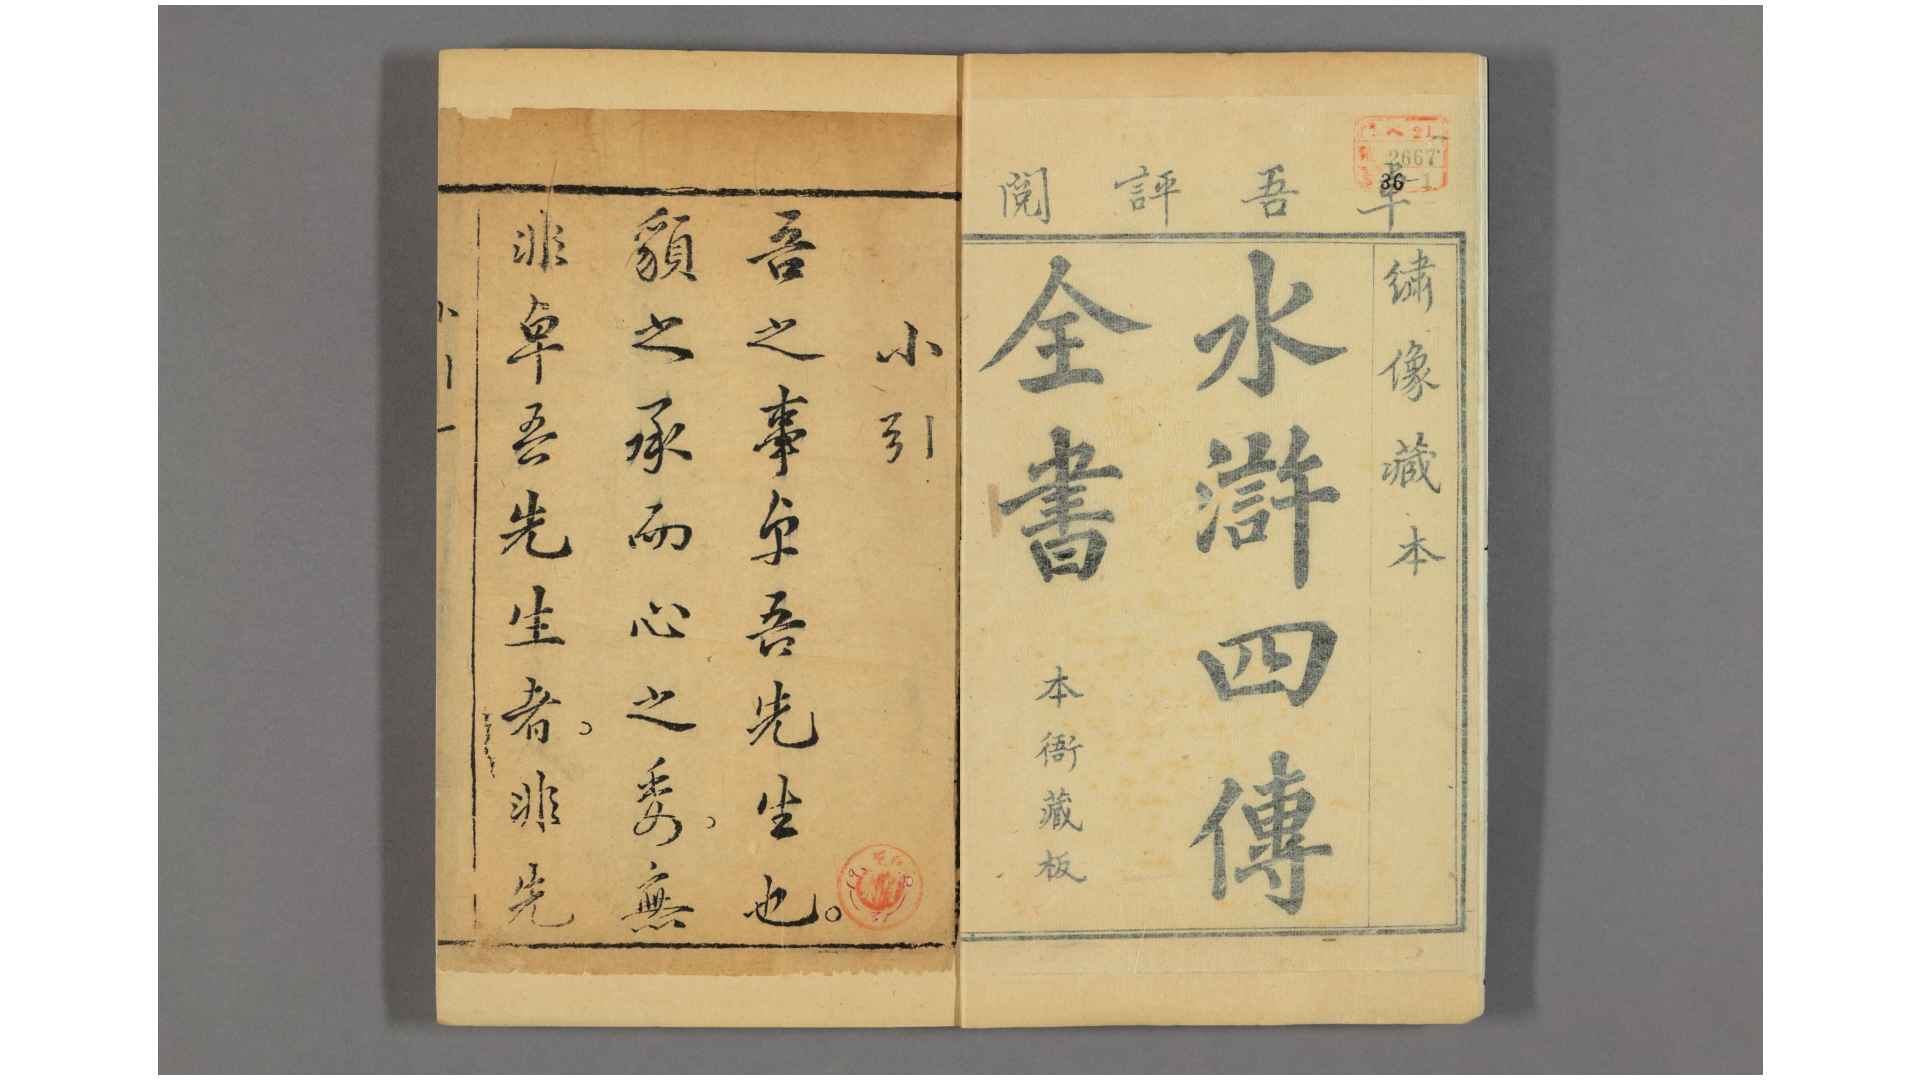 卓吾評閱
繡像藏本
水滸四傳
全書
本衙藏板
2667
36-1
小引
吾之事卓吾先生也。
貌之承而心之委。無
非卓吾先生者。非先
小引 一